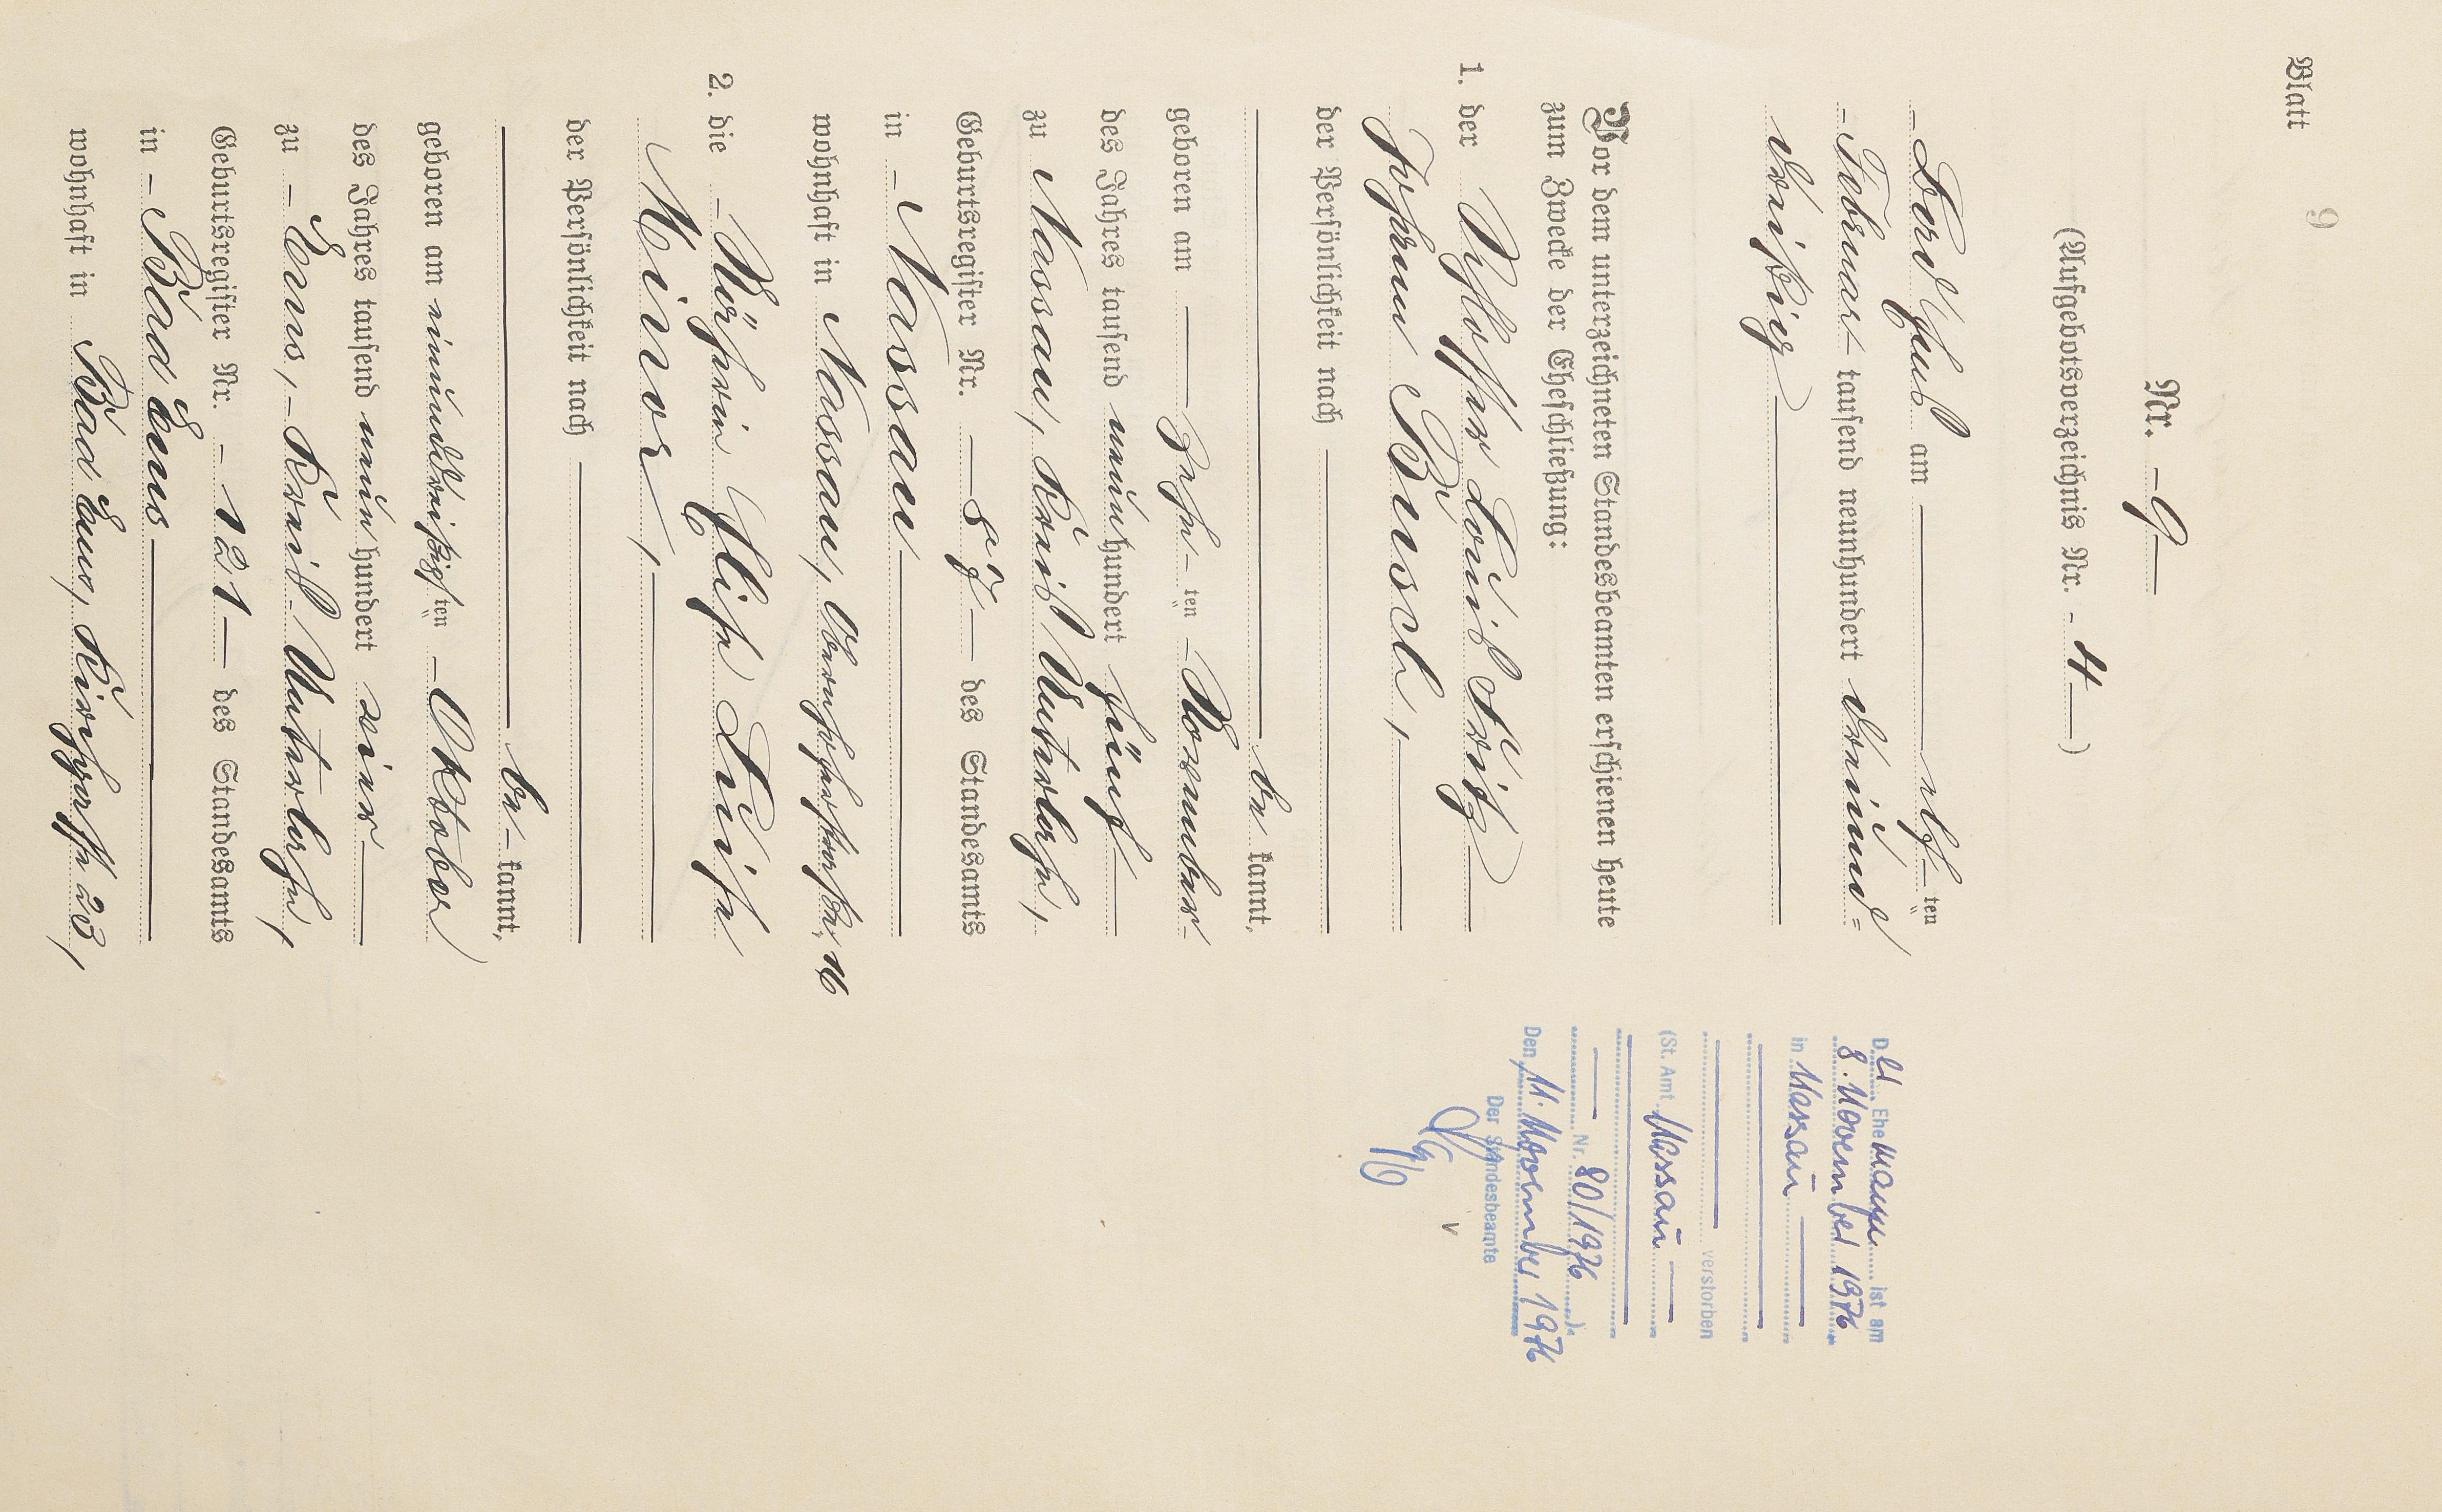 Blatt 9
Nr. - 9 -
(Aufgebotsverzeichnis Nr. - 4 - )
- Bad Ems am - elf - ten
- Februar - tausend neunhundert dreiund=
dreißig
Vor dem unterzeichneten Standesbeamten erschienen heute
zum Zwecke der Eheschließung:
1. der Schlosser Louis Fritz
Johann Busch, -
der Persönlichkeit nach
be - kannt,
geboren am - zehn - ten - November -
des Jahres tausend neun hundert fünf -
zu Nassau, Kreis Unterlahn,
Geburtsregister Nr. - 57 - des Standesamts
in - Nassau -
wohnhaft in Nassau, 16
2. die - Näherin Luise
der Persönlichkeit nach
be - kannt,
geboren am einunddreißigs ten - Oktober
des Jahres tausend neun hundert vier -
zu - Ems, - Kreis Unterlahn,
Geburtsregister Nr. - 121 - des Standesamts
in - Bad Ems -
wohnhaft in Bad Ems, 23,
Der Ehemann ist am
8. November 1976
in Nassau -
verstorben
(St. Amt Nassau -
Nr. 80/1976 ).
Den 11. November 1976
Der Standesbeamte